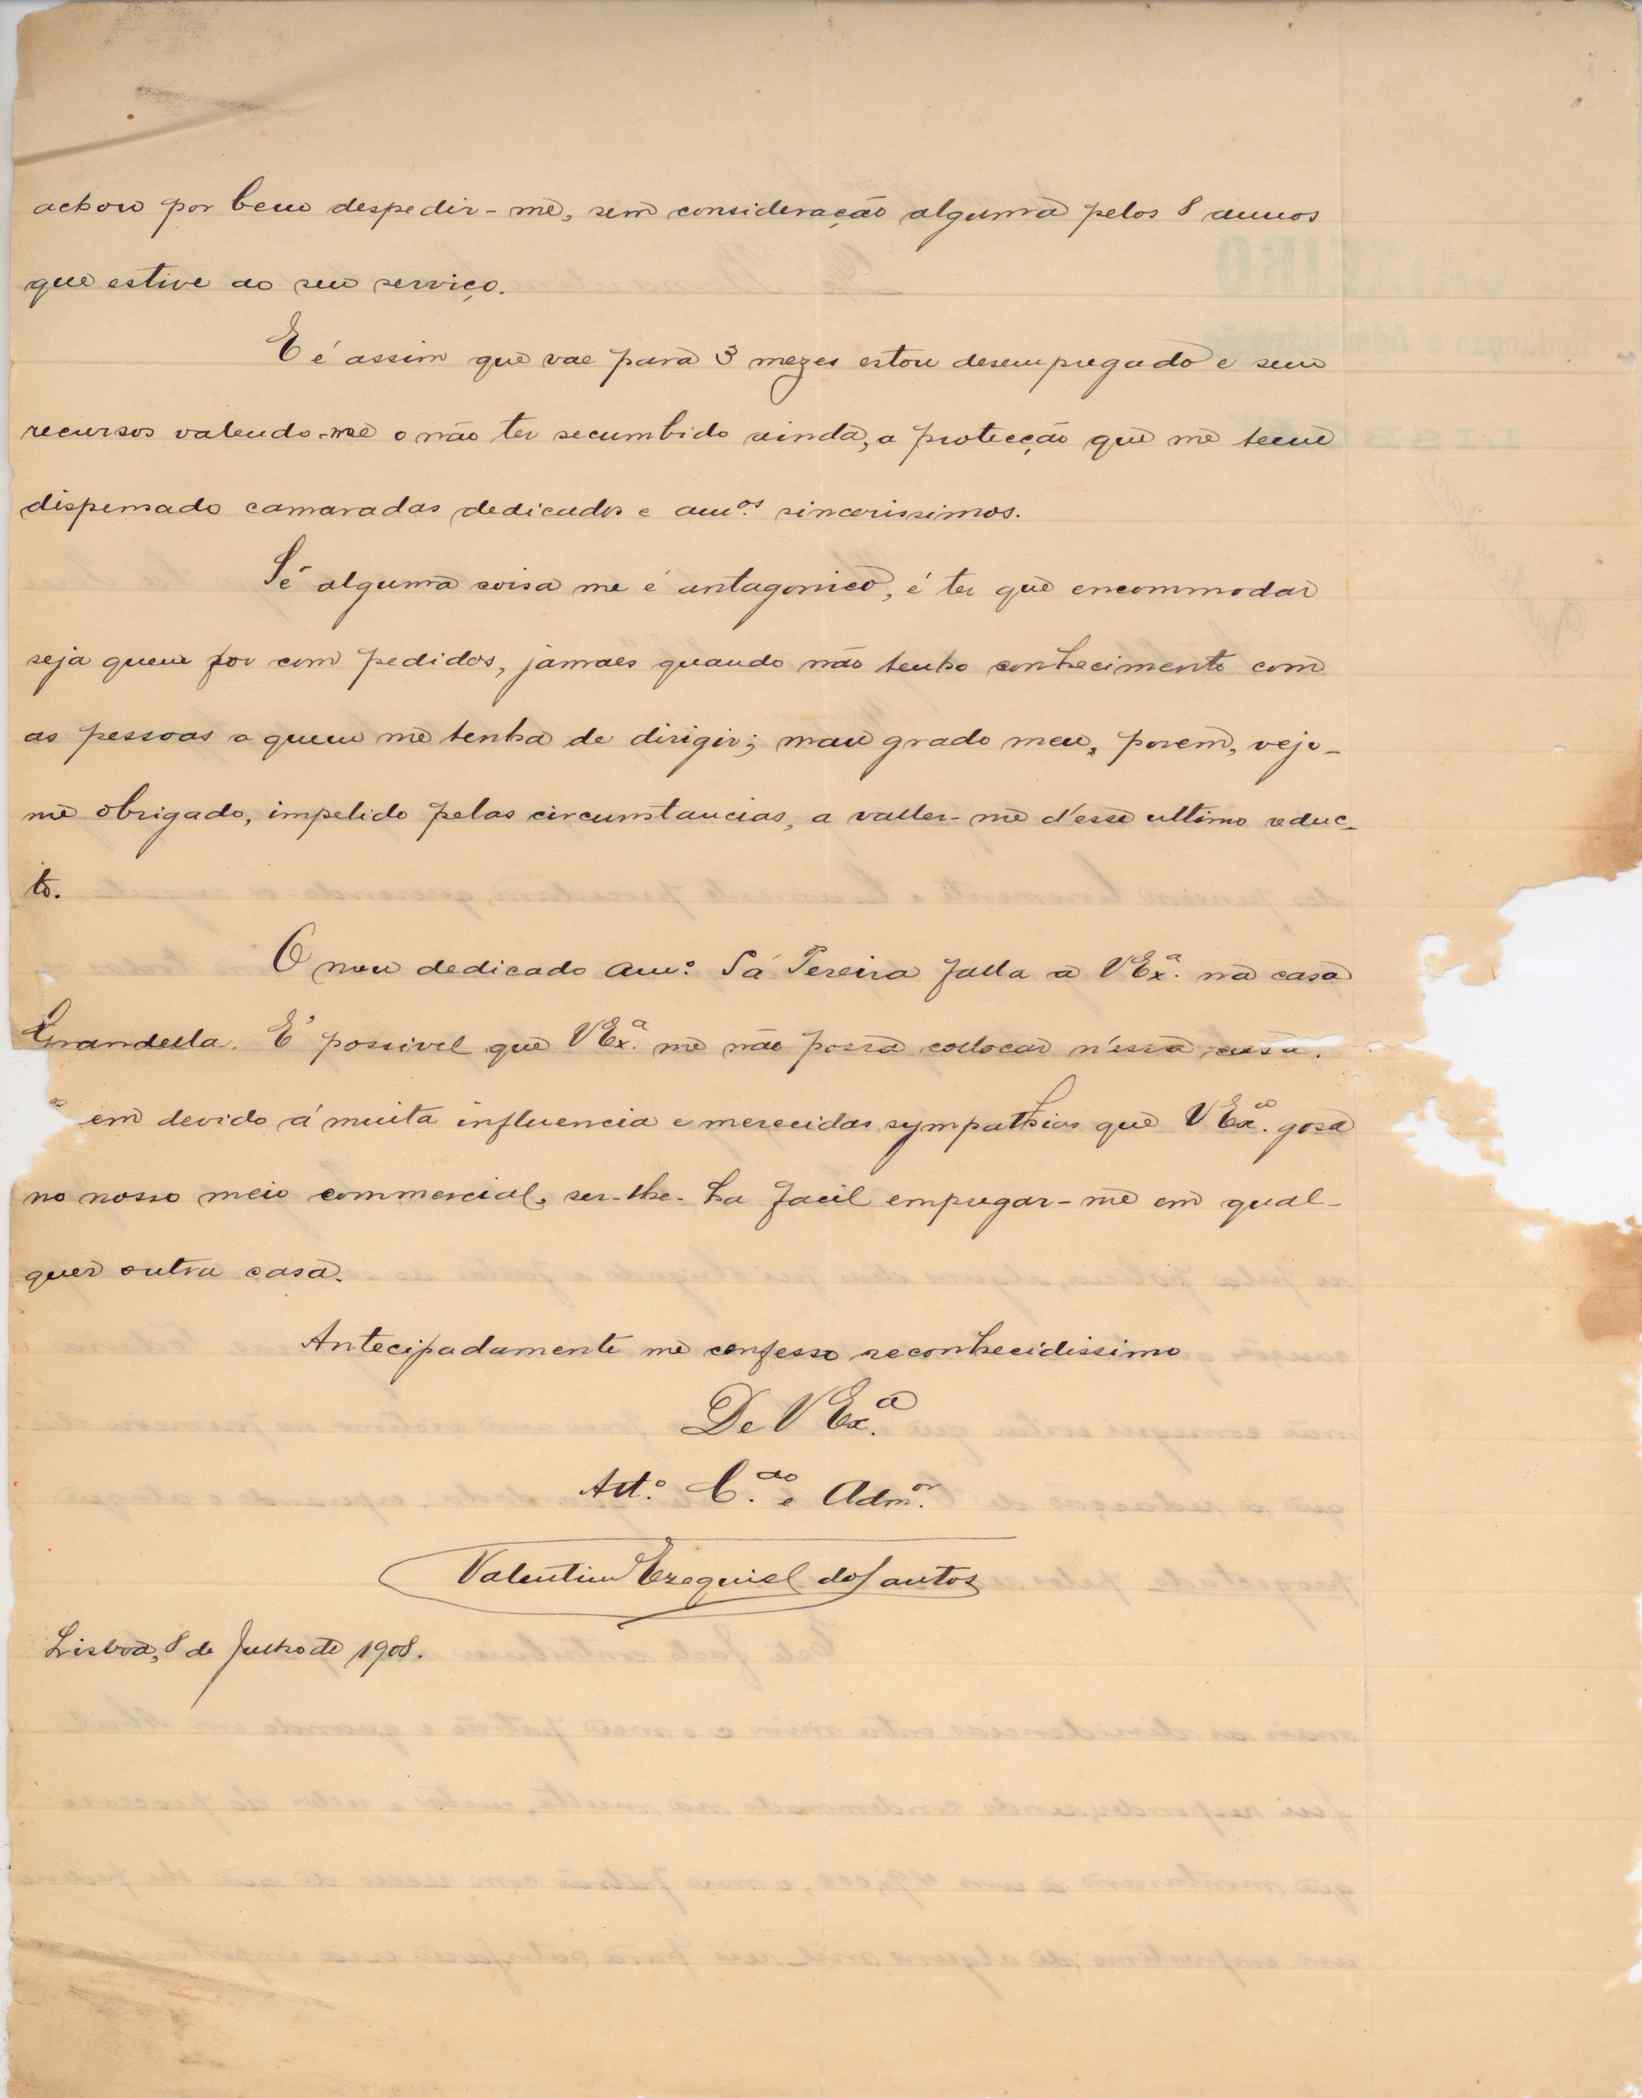 achou por bem despedir-me, sem consideração alguma pelos 8 annos
que estive ao seu serviço.
E é assim que vae para 3 mezes estou desempregado e sem
recursos valendo-me o não ter secumbido ainda, a protecção que me teem
dispensado camaradas dedicados e am.os sincerissimos.
Se alguma coisa me é antagonico, é ter que encommodar
seja quem for com pedidos, jamaes quando não tenho conhecimento com
as pessoas a quem me tenha de dirigir; mau grado meu, porem, vejo-
me obrigado, impelido pelas circumstancias, a valler-me d'esse ultimo reduc-
to.
O meu dedicado am.o Sá Pereira falla a V Ex.a na casa
Grandella. E' possivel que V Ex.a me não possa collocar n'essa casa.
em devido á muita influencia e merecidas sympathias que V Ex.a gosa
no nosso meio commercial, ser-lhe-ha facil empregar-me em qual-
quer outra casa.
Antecipadamente me confesso reconhecidissimo
De V Ex.a
Att.o C.do e Adm.or
Valentim Ezequiel dos Santos
Lisboa, 8 de Julho de 1908.